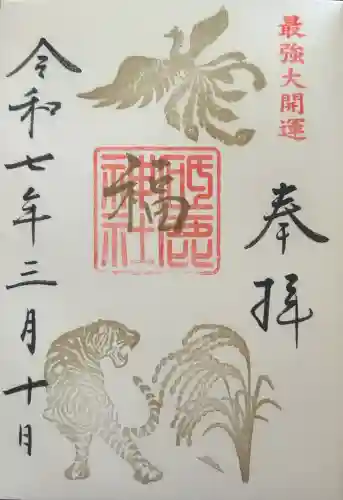 最強大開運
奉拝
砥鹿神社
福
令和七年三月十日